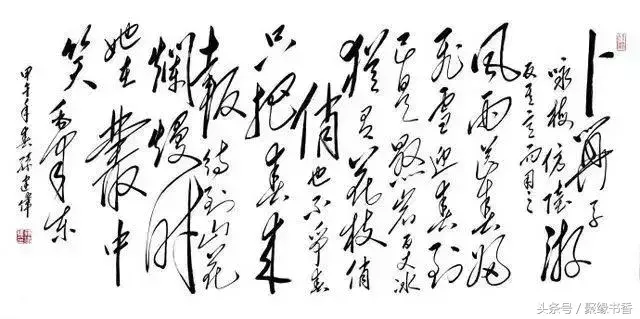 卜算子
咏梅仿陆游
反其意而用之
風雨送春归
飛雪迎春到
已是懸岩百丈冰
猶有花枝俏
俏也不争春
只把春来
報待到山花
爛熳时
她在叢中
笑毛泽东
甲午年春孙建伟
头条号 / 聚缘书香